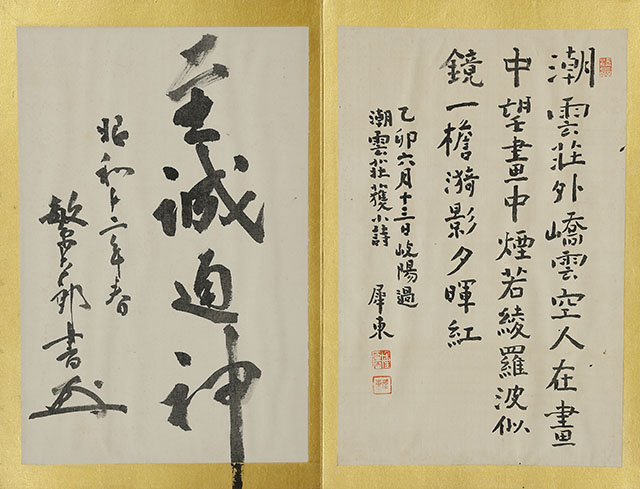 潮雲莊外嶠雲空人在畫
中望畫中煙若綾羅波似
鏡一檐漪影夕暉紅
乙卯六月十三日岐陽過
潮雲莊獲小詩 犀東
至誠通神
昭和十二年春
敏 郎書